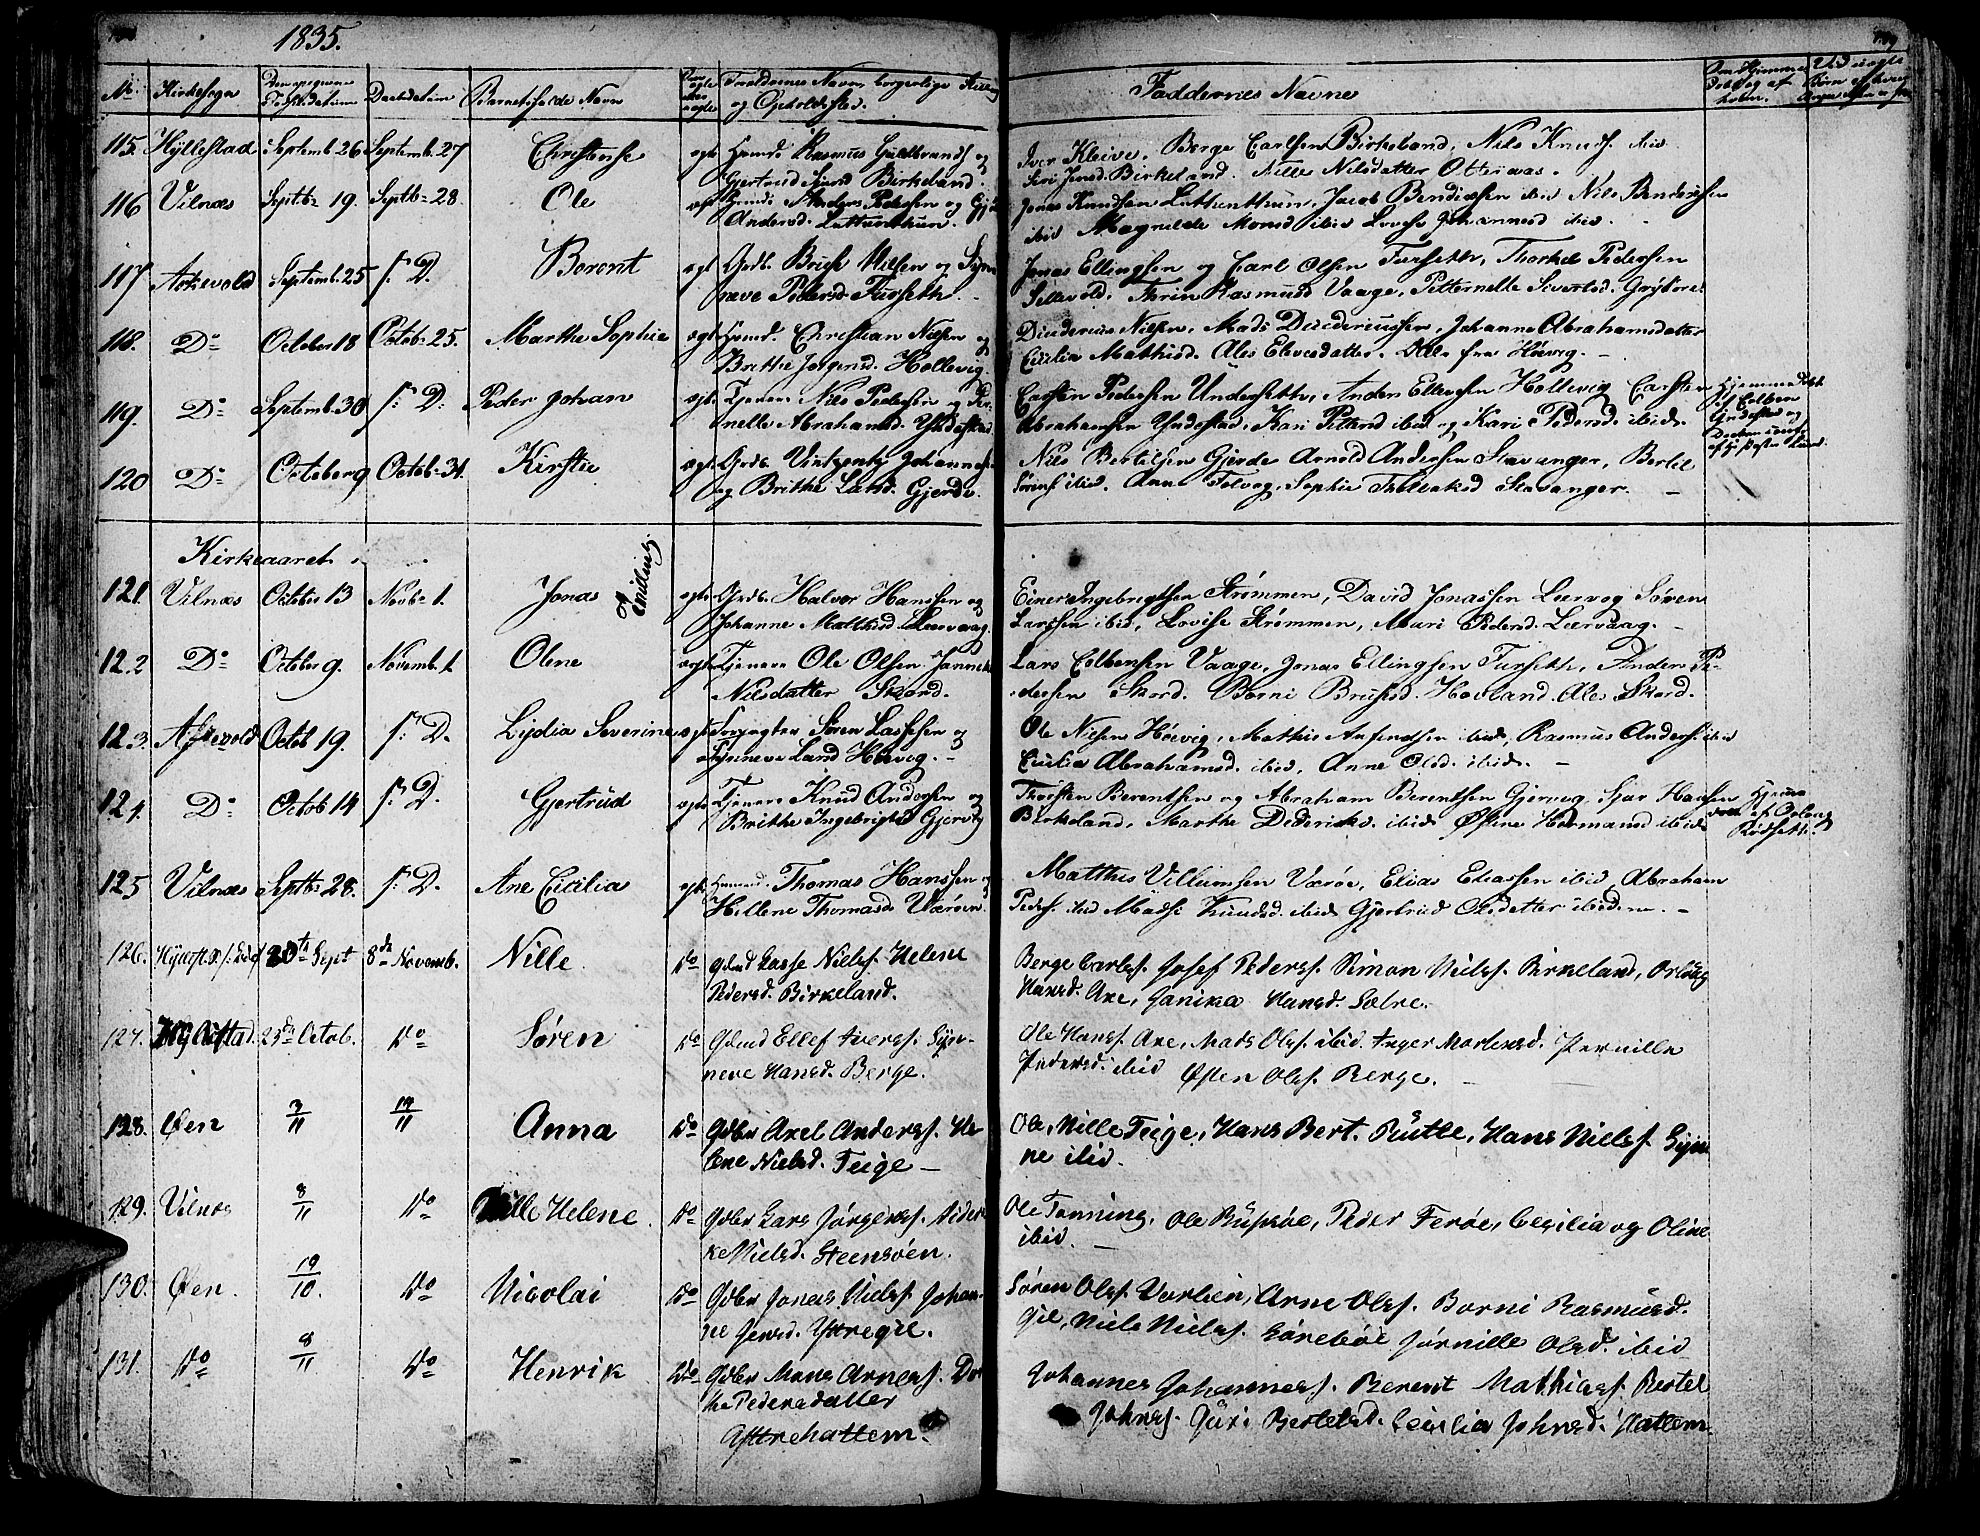 1835.
No Kirkesogn Daabsdatum Barnets fulde Navn Forældrenes Navn, borgerlige Stilling og Opholdssted.
Faddernes Navne
115. Hyllestad Septemb. 26 Septemb. 27 Christense ægte Huusmd. Rasmus Guldbrands. og
Gjertrud Birkeland.
Iver Kleive, Berge Carlsen Birkeland, Nils Knuds. ibid
Siri Jensd. Birkeland. Nille Nilsdatter Otteraas.
116 Vilnæs Septb. 19. Septb. 28. Ole ægt Anders Pedersen og
Andersd. Lutterthun.
Jonas Knudsen Lutterthun, Jacob Bendixsen ibid Nils Bendixsen
ibid Magnilde Monsd ibid Lovise Johannesd ibid.
117. Askevold Septemb. 25 s. D. Berent ægt Grdb. Bruse Nilsen og Syn
neve Pedersd. Furseth.
Jonas Ellingsen og Carl Olsen Furseth, Thorkel Pedersen
Sellevold. Thrin Rasmusd Vaage, Petternelle Sivertsd.
118. Do October 18 Octob. 25. Marthe Sophie ægt Huusmd. Christian Nilsen og
Brithe Jørgensd. Hollevig.
Diederius Nilsen, Mads Diederiussen, Johanne Abrahamsdatter
Cicilia Mathisd. Ales Elevesdatter. Alle fra Høevig.
119. Do Septemb. 30 s. D. Peder Johan ægt. Tjener Nils Pedersen og Per
nelle Abrahamsd. Yndestad.
Carsten Pedersen Underseth, Anders Ellevsen Hollevig Carsten
Abrahamsen Yndestad, Kari Pettersd ibid og Kari Pedersd. ibid.
Hjemmedøbt
af Colben
Yndestad og
120 Do October 9 Octob. 31. Kirstie ægte Grdb. Vintzents Johannes.
og Brithe Larsd. Gjerde.
Nils Bertilsen Gjerde Arnold Andersen Stavanger, Bertil
Sørens. ibid. Anne Folvog, Sophie Stavanger.
Kirkeaaret
121. Vilnæs October 13 Novb. 1. Jonas Emilius. ægte Grdb. Halvor Hanssen og
Johanne Mathisd. Leervaag.
Einer Ingebrigtsen Strømmen, David Jonassen Leervog Søren
Larssen ibid, Lovise Strømmen, Mari Pedersd. Leervaag.
122 Do October 9. Novemb. 1 Olene ægte Tjener Ole Olsen Janneke
Nilsdatter Skord.
Lars Colbensen Vaage, Jonas Ellingsen Furseth, Anders Pe-
dersen Skord. Berni Brusesd. Hovland. Ales Skord.
123. Askevold Octob 19. s. D. Lydia Severine ægt Søren Lassesen og
Synneve Hoevig.
Ole Nilsen Hoevig, Mathis ibid, Rasmus Anders. ibid
Cicilia Abrahamsd. ibid, Anne Olsd. ibid.
124. Do Octob 14 s. D. Gjertrud ægte Tjener Knud Andersen og
Brithe Ingebrigtsd Gjervig
Thorsten Berentsen og Abraham Berentsen Gjervig, Sjur Hansen
Birkeland, Marthe Dederiksd. ibid Østine Hermansd ibid
Hjemme
døbt af
Rødseth.
125 Vilnæs Septb. 28. s. D. Ane Cicilia ægt. Huusmd. Thomas Hanssen og
Hellene Thomasd Værøen.
Matthis Villumsen Værøe, Elias Eliassen ibid, Abraham
Peders. ibid Madsi Knudsd. ibid Gjertrud Olsdatter ibidem.
126. Hyllest. 20de Sept 8de Novemb. Nille Do Gdmd Lasse Niels. Helene
Pedersd. Birkeland.
Berge Carls. Josef Peders. Simon Niels. Birkeland, Orlaug
Hansd. Axe, Janika Hansd. Sætre.
127. Hyllestad. 23de Octob. Do Søren Do Gdmd Ellef Ivers. Syn-
neve Hansd. Berge.
Ole Hans. Axe, Mads Ols. ibid. Inger Mortensd. Pernille
Pedersd. ibid Østen Ols. Berge.
128. Øen 3/11 14/11 Anna Do Gdbr Axel Anders. He
lene Nielsd. Teige —
Ole, Nille Teige, Hans Bert. Rutle, Hans Niels. Synne
ne ibid.
129. Vilnæs 8/11 Do Nille Helene. Do Gdbr Lars Jørgens. Dider
ke Nielsd. Steensøen.
Ole Tonning, Ole Rüpsøe, Peder Ferøe, Cecilia og Oline
ibid. —
130. Øen. 19/10. Do Nicolai Do Gdbr Jonas Niels. Johan-
ne Jensd. Yttregil.
Søren Ols. Vorlien, Arne Ols. Borni Rasmusd.
Gil, Niels Niels. Sørebøe Jørnille Olsd. ibid
131. Do 8/11 Do Henrik Do Gdbr Mons Arnes. Dor
the Pedersdatter
Yttrehattem.
Johannes Johannes. Berent Mathias. Bertel
Johns. Guri Bertelsd. Cecilia Johnsd. Hattem.